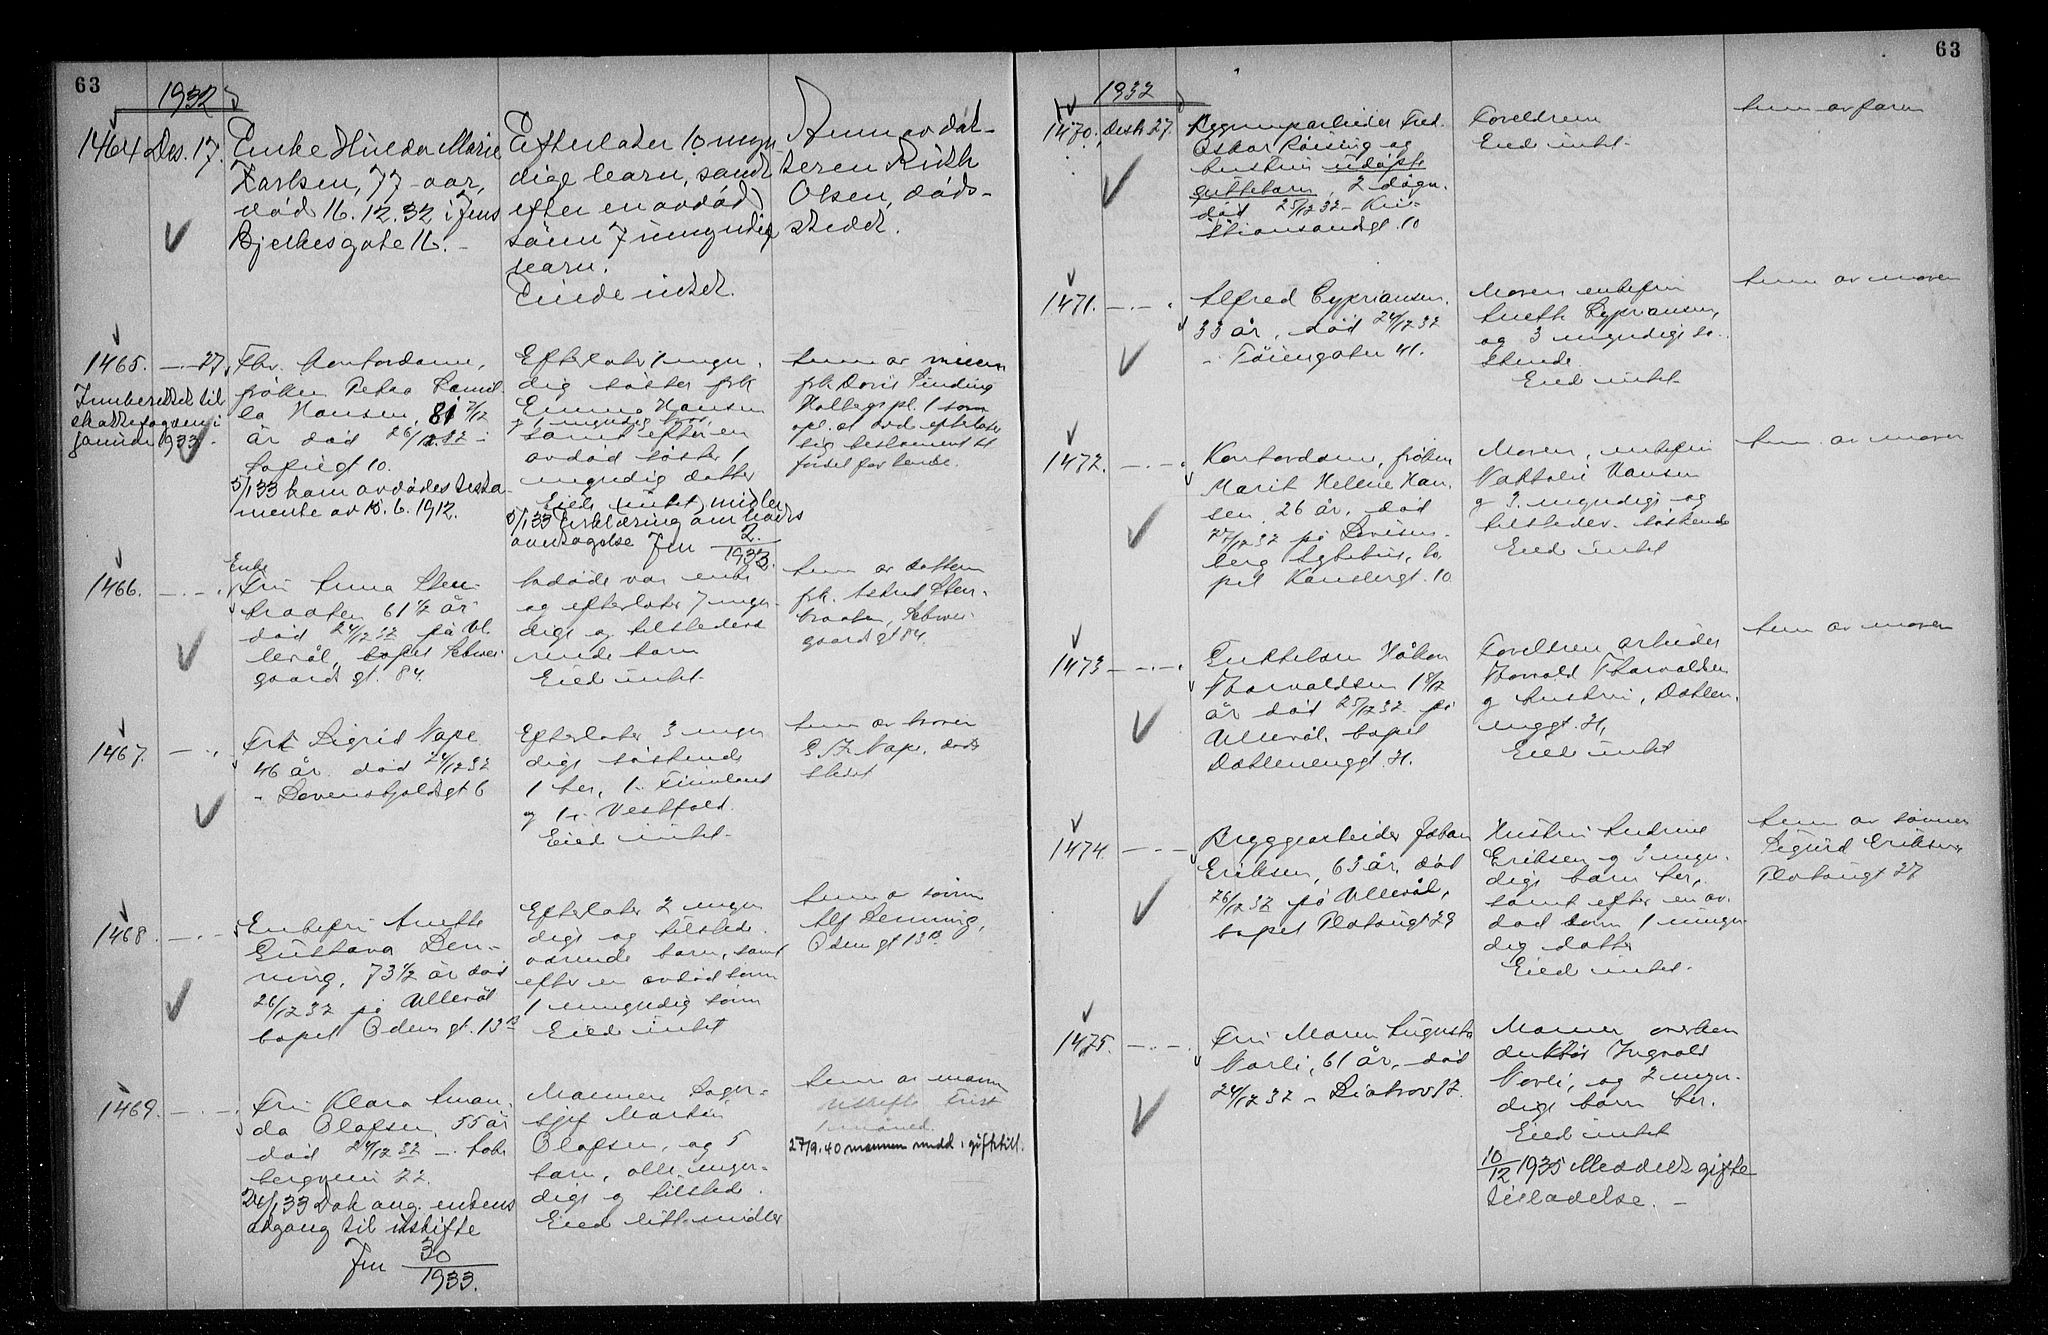 63
1932
1464 Des. 17. Enke Hulda Marie
Karlsen, 77 aar,
död 16.12.32 i Jens
Bjelkesgate 16. -
Efterlater 10 myn
dige barn, samt
efter en avdöd
sönn 7 umyndige
barn.
Eiede intet.
Anm av dat-
teren Ruth
Olsen, döds-
stedet.
1465. - 27.
Innberettet til
skattefogden i
januar 1933.
Fhv. kontordame,
fröken Petra Camil
la Hansen, 81 7/12
år död 26/12 32 i
Sofiegt 10.
5/1 33 kom avdödes testa
mente av 15.6.1912.
Efterlater 1 myn
dig söster frk
Emma Hansen
samt efter en
avdöd söster 1
myndig datter
Eiede intet midler
5/1 33 Erklæring om boets
overtagelse Jnr 2/1933.
Anm av
frk Doris Sinding
Holbergs pl. 1 som
opl. at avd. efterlater
sig testament til
fordel for henne.
1466. - . - .
Enke
Fru Anna Sten-
braaten 61 1/2 år
död 24/12 32 på Ul
levål, bopel Schwei
gaards gt. 84.
Avdöde var enke
og efterlater 7 myn-
dige og tilstedevæ
rende barn
Eied intet.
Anm av datteren
frk. Astrid Sten-
braaten, Schwei
gaards gt 84
1467. - .
Frk Sigrid Nape
46 år. död 24/12 32
- Lövenskjoldsgt 6
Efterlater 3 myn
dige söskende
1 her, 1 i Finnland
og 1 i Vestfold.
Eied intet.
Anm av broren
Nape, döds
stedet
1468. - . -
Enkefru Anette
Gustava Den-
ning, 73 1/2 år död
26/12 32 på Ullevål
bopel Odins gt. 13 B
Efterlater 2 myn
dige og tilstede-
værende barn, samt
efter en avdöd sönn
1 umyndig sönn
Eied intet
Anm av sönnen
Alf Denning,
Odins gt 13 B.
1469. - . - .
Fru Klara Aman
da Olafsen, 55 år
död 24/12 32 -
bergveien 22.
24/1 33 Dok ang. enkens
adgang til uskifte
Jnr 30/1933.
Mannen Lager-
sjef Martin
Olafsen, og 5
barn, alle myn-
dige og tilstede.
Eied litt midler
Anm av mannen
Uskifte frist
1 måned.
27/9.40 mannen medd. giftetill.
63
1932
1470. Desbr. 27. Bryggearbeider Fred.
Oskar Röising og
hustrus udöpte
guttebarn, 2 dögn.
död 25/12 32 - Kri-
stiansandsgt. 10
Foreldrene
Eied intet.
Anm av faren
1471. - . - .
Alfred Cypriansen.
33 år, död 24/12 32
- Töiengaten 41.
Moren enkefru
Anette Cypriansen,
og 3 myndige sö-
skende
Eied intet.
Anm av moren
1472. - . - .
Kontordame, fröken
Marit Helene Han
sen, 26 år, död
27/12 32 på Lovisen-
berg sykehus, bo
pel Kanslergt. 10
Moren, enkefru
Nathalie Hansen
og 3 myndige og
tilstedev. söskende
Eied intet
Anm. av moren
1473 - . - .
Guttebarn Håkon
Thorvaldsen 1 8/12
år död 25/12 32 på
Ullevål, bopel
Dæhlenenggt. 21.
Foreldrene arbeider
Thorvald Thorvaldsen
og hustru, Dæhlen-
enggt. 21,
Eied intet
Anm av moren
1474. - . -
Bryggearbeider Johan
Eriksen, 63 år, död
26/12 32 på Ullevål,
bopel Platousgt 29
Hustru Andrine
Eriksen og 3 myn-
dige barn her,
samt efter en av-
död sönn 1 umyn-
dig datter
Eied intet.
Anm av sönnen
Sigurd Eriksen
Platousgt 27
1475. - . - .
Fru Maren Augusta
Norli, 61 år, död
24/12 32 -
Mannen, overkon
duktör Ingvald
Norli, og 2 myn-
dige barn her.
Eied intet
10/12 1935 Meddelt gifte
tilladelse. -